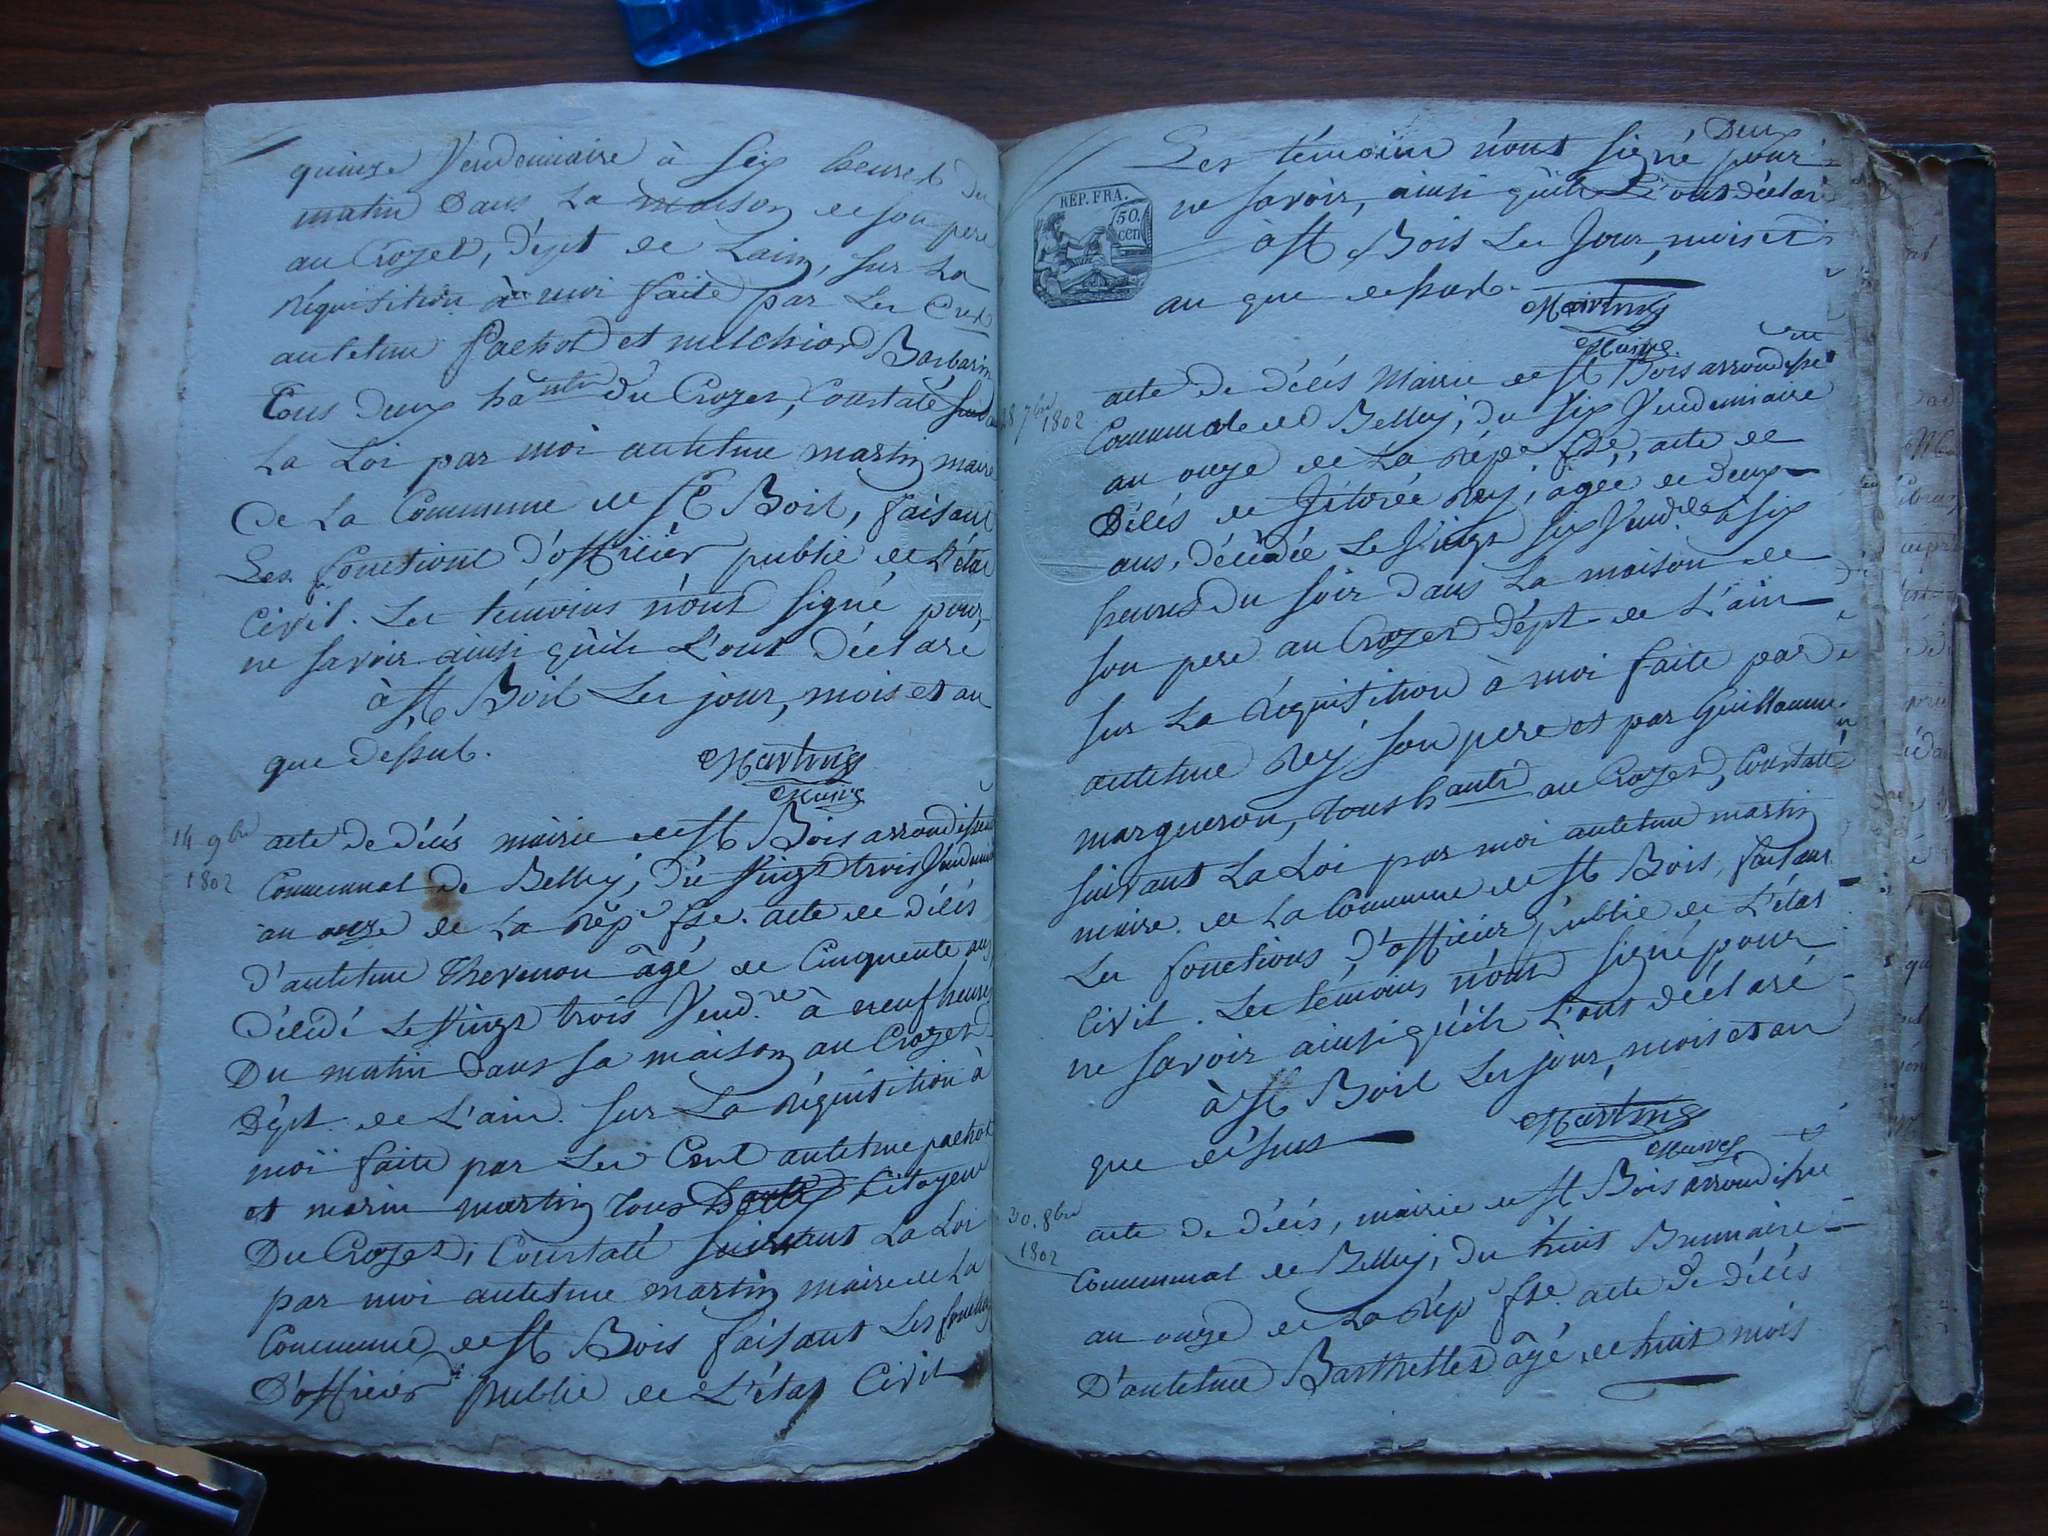 quinze Vendemiaire à six heures du
matin dans La maison de son pere
au Crozet, dépt de Lain, sur La
réquisition à moi faite par Les
antelme pachot et melchior Barbarin
tous deux du Crozet, Constaté
La Loi par moi antelme martin maire
de La Commune de St Bois, faisant
Les fonctions d'officier public de L'état
Civil. Les témoins n'ont signé pour
ne savoir ainsi qu'ils L'ont déclaré
à St Bois Les jour, mois et an
que dessus.
Martin
Maire
14 9bre
1802
acte de décés mairie de St Bois
Communal de Belley, du Vingt trois
an onze de La rép fse. acte de décés
d'antelme Thevenon âgé de Cinquente ans
décédé Le Vingt trois Vend.re à neuf heures
du matin dans sa maison au Crozet
Dépt. de L'ain. sur La réquisition à
moi faite par Les antelme pachot
et marin martin tous Citoyens
Du Crozet, Constaté suivant La Loi
par moi antelme martin maire de La
Commune de St Bois faisant Les
D'officier public de L'état Civil
Deux
Les témoins n'ont signé pour
RÉP. FRA.
50.
cen
ne savoir, ainsi qu'ils L'ont déclaré
à St Bois Les Jour, mois et
an que dessus.
Martin
Maire
28 7bre
1802
acte de décés Mairie de St Bois
Communal de Belley, du six Vendemiaire
an onze de La rép fse, acte de
Décés de rey, agée de deux
ans, décédée Le Vingt six Vend.re à six
heures du soir dans La maison de
son pere au Crozet dépt de L'ain
sur La réquisition à moi faite par
antelme rey son pere et par Guillaume
margueron, tous hants au Crozet, Constaté
suivant La Loi par moi antelme martin
maire de La Commune de St Bois, faisant
Les fonctions d'officier public de L'état
Civil. Les témoins n'ont signé pour
ne savoir ainsi qu'ils L'ont déclaré
à St Bois Les jour, mois et an
que desus
Martin
Maire
30. 8bre
1802
acte de décés, mairie de St Bois
Communal de Belley, du huit Brumaire
an onze de La rép fse. acte de décés
D'antelme Barthellet âgé de huit mois